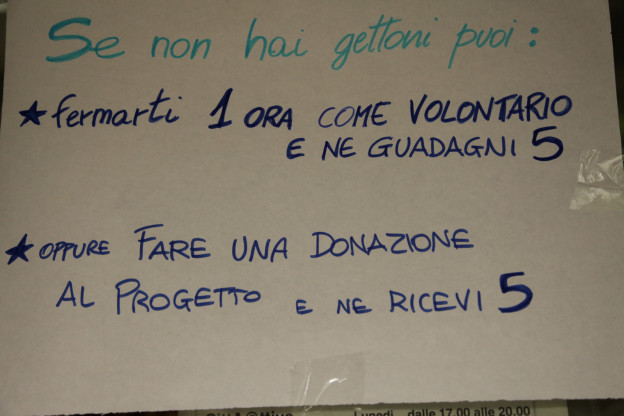 Se non hai gettoni puoi:
★ fermarti 1 ORA COME VOLONTARIO
E NE GUADAGNI 5
★ OPPURE FARE UNA DONAZIONE
AL PROGETTO E NE RICEVI 5
Lunedì dalle 17.00 alle 20.00